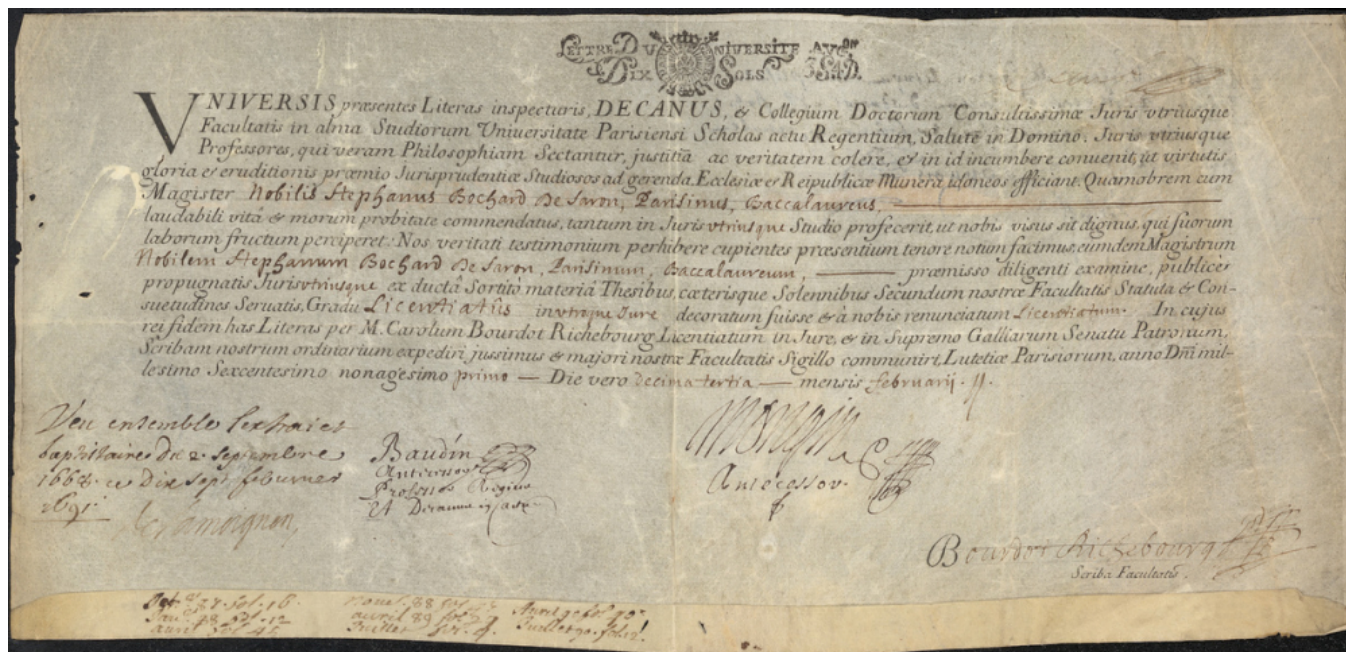 LETTRE DU UNIVERSITE AVGon
DIX SOLS 3S4D.
VNIVERSIS præsentes Literas inspecturis, DECANUS, & Collegium Doctorum Consultissimæ Juris vtriusque
Facultatis in alma Studiorum Universitate Parisiensi Scholas actu Regentium, Salutē in Domino. Juris vtriusque
Professores, qui veram Philosophiam Sectantur, justitiā ac veritatem colere, & in id incumbere convenit, ut virtutis
gloria & eruditionis præmio Jurisprudentiæ Studiosos ad gerenda Ecclesiæ & Reipublicæ Munera idoneos efficiant. Quamobrem cum
Magister Nobilis Stephanus Bochard De Saron, Parisinus, Baccalaureus,
laudabili vitâ & morum probitate commendatus, tantum in Juris vtriusque Studio profecerit, ut nobis visus sit dignus, qui suorum
laborum fructum perciperet: Nos veritati testimonium perhibere cupientes præsentium tenore notum facimus, eumdem Magistrum
Nobilem Stephanum Bochard De Saron, Parisinum, Baccalaureum, præmisso diligenti examine, publicè
propugnatis Juris vtriusque ex ductâ Sortitò materiâ Thesibus, cæterisque Solennibus Secundum nostræ Facultatis Statuta & Con-
suetudines Servatis, Gradu Licentiatûs in vtroque Jure decoratum fuisse & à nobis renunciatum Licentiatum. In cujus
rei fidem has Literas per M. Carolum Bourdot Richebourg Licentiatum in Jure, & in Supremo Galliarum Senatu Patronum,
Scribam nostrum ordinarium expediri, jussimus & majori nostræ Facultatis Sigillo communiri, Lutetiæ Parisiorum, anno Dñi mil-
lesimo Sexcentesimo nonagesimo primo — Die vero decima tertia — mensis februarij.
Veu ensemble lextraict
baptistaire du 2. septembre
1668. ce dix sept feburier
1691.
Delamoignon,
Baudin
Antecessor
Professor Regius
Et Decanus
Mongin
Antecessor.
Bourdot Richebourg
Scriba Facultatis.
Oct. 87. fol. 16.
Janv. 88 fol. 12
avril fol. 45
Nouel. 88 fol.
avril 89 fol.
Juillet fol. 9.
Avril 90 fol. 90
Juillet 90. fol. 12.